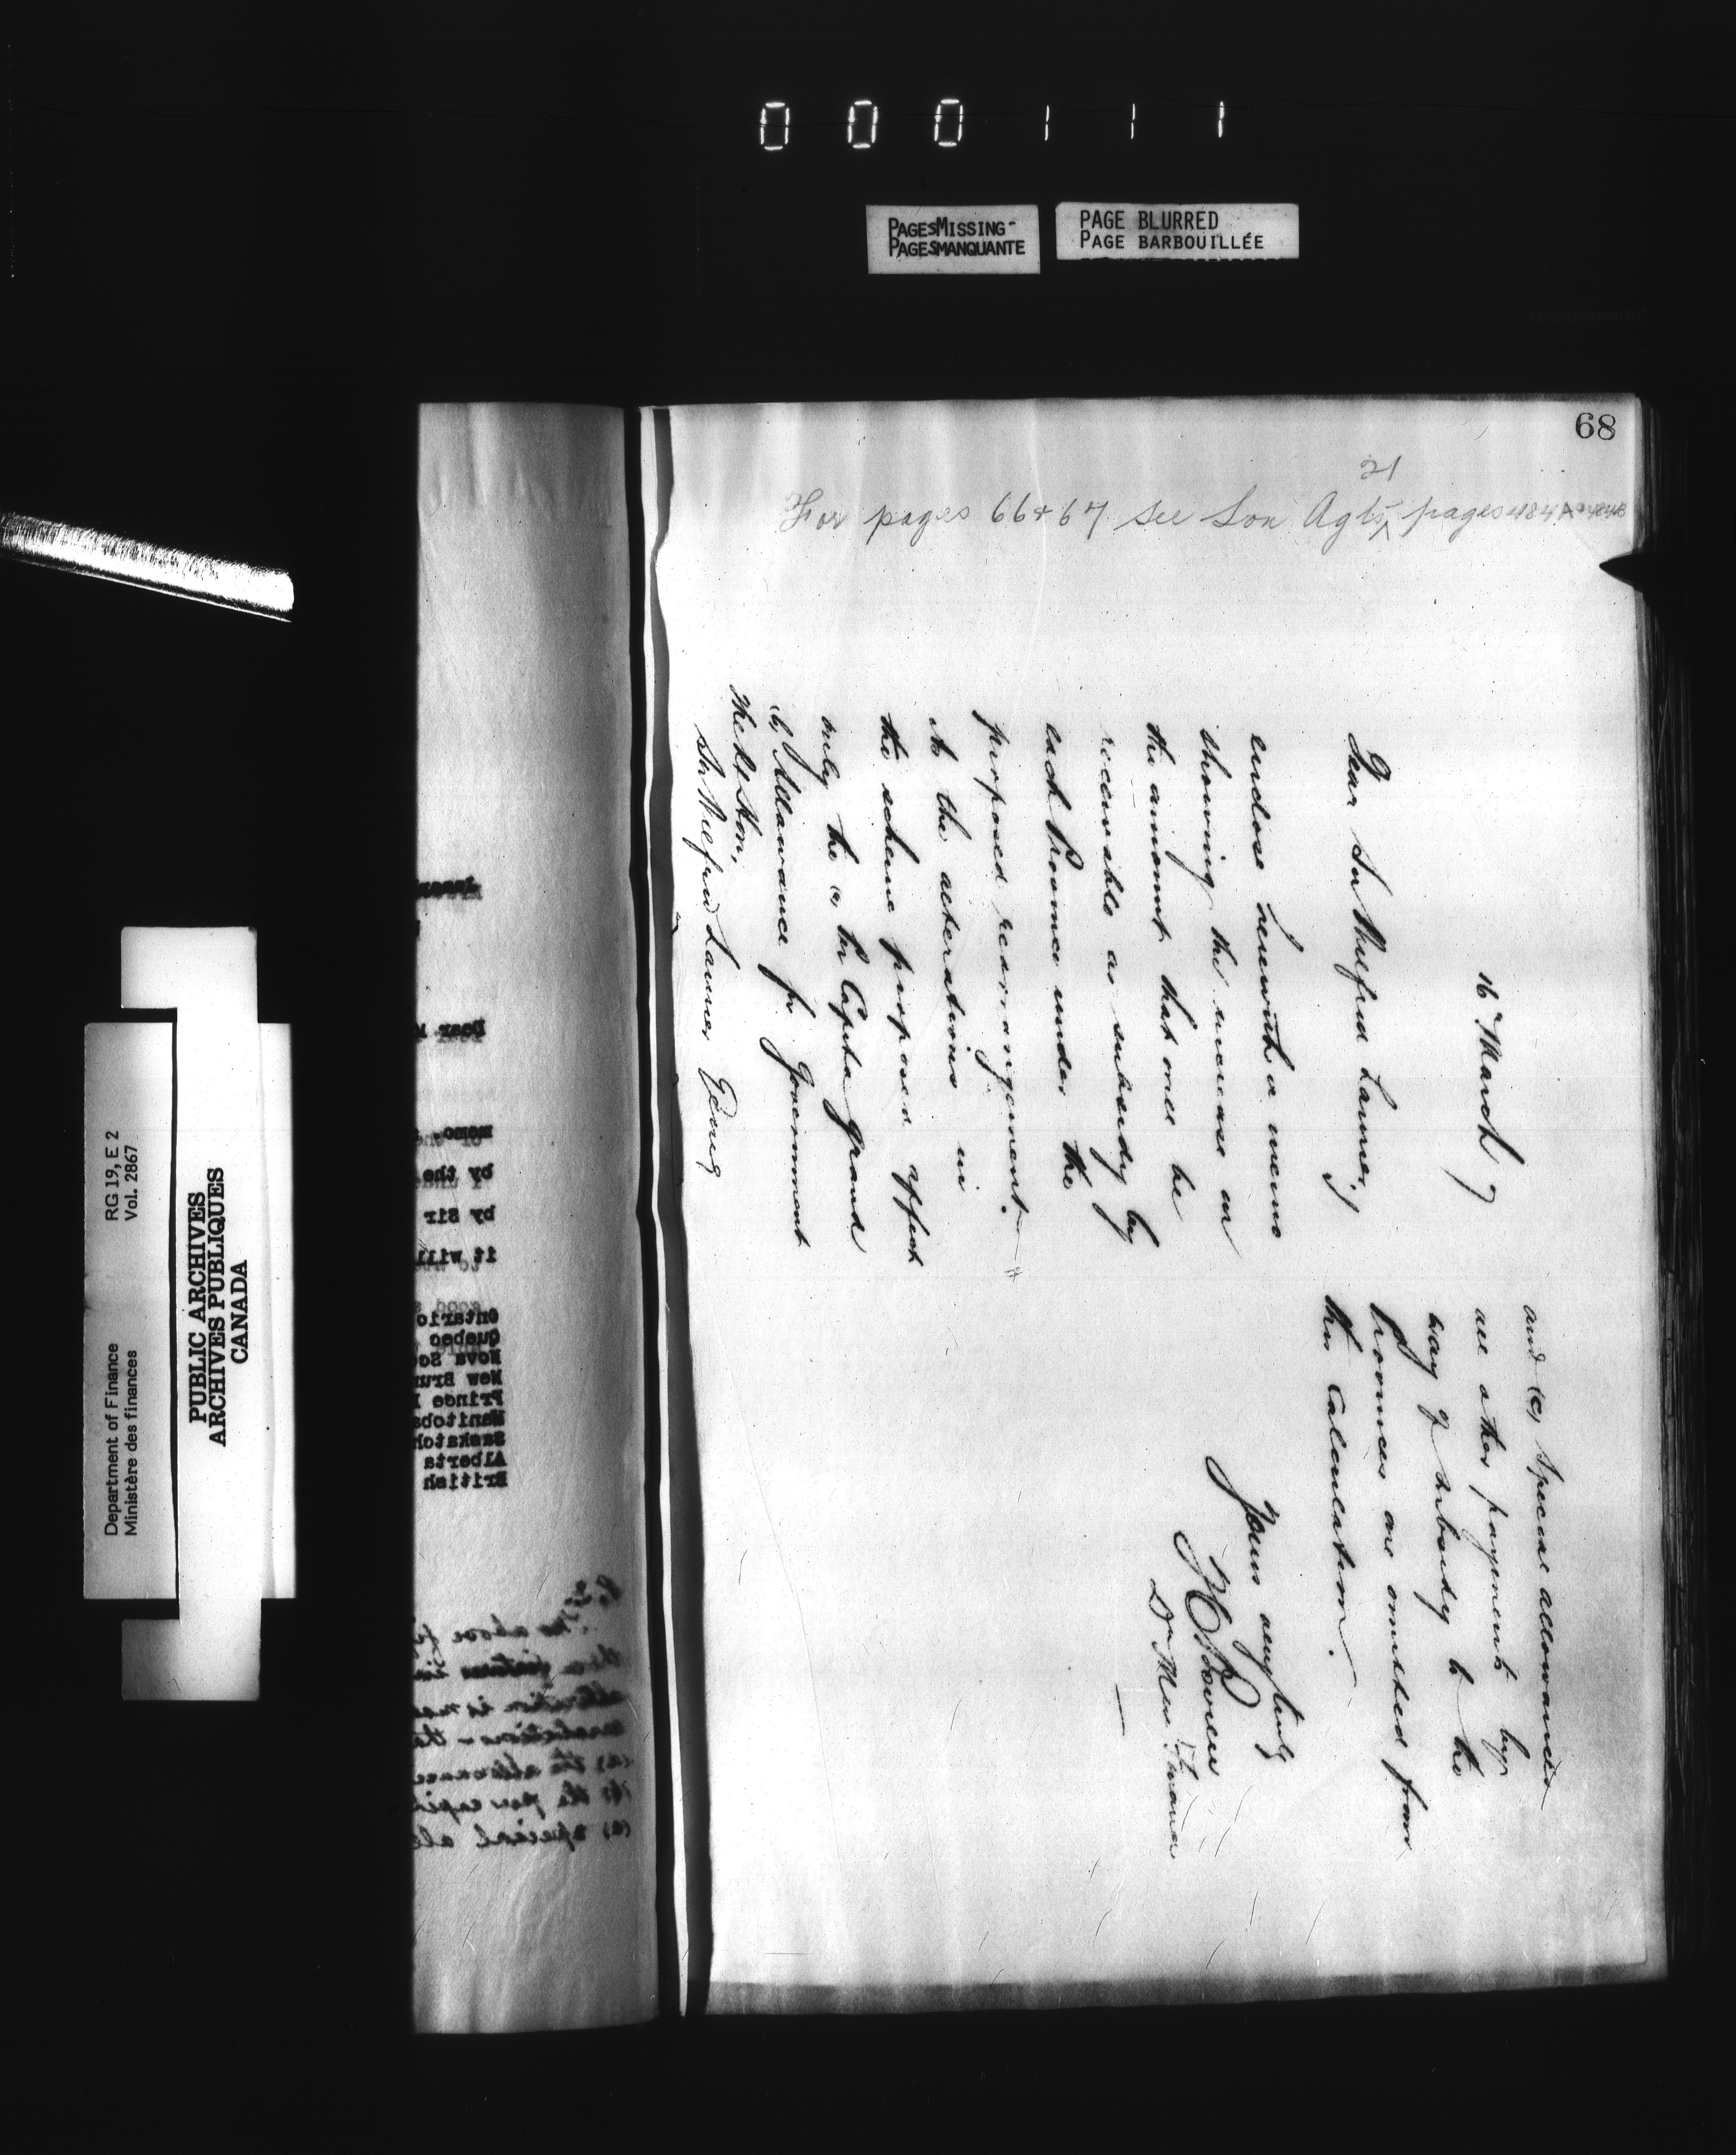 000111
PAGES MISSING -
PAGES MANQUANTE
PAGE BLURRED
PAGE BARBOUILLÉE
68
21
For pages 66 & 67 see Lon Agts pages 484A & 484B
16th March 7
Dear Sir Wilfrid Laurier,
enclose herewith a memo
showing the increase in
the amount that once be
receivable as subsidy by
each Province under the
proposed rearrangement.
As the alterations in
the scheme proposed affect
only the (a) Per Capita grant
(b) Allowance for Government
The Rt Hon,
Sir Wilfrid Laurier GCMG
and (c) Special allowances
all other payments by
way of subsidy to the
Provinces are omitted from
this calculation.
Yours very truly
Dr Min Finance
Dear
memo.
by the
by Sir
it will
Ontario
Quebec
Nova Sco
New Brun
Prince
Manitoba
Saskatch
Alberta
British
The above
alteration is
(a) the allowance
(b) the per capi
(c) special all
RG 19, E 2
Vol. 2867
Department of Finance
Ministère des finances
PUBLIC ARCHIVES
ARCHIVES PUBLIQUES
CANADA